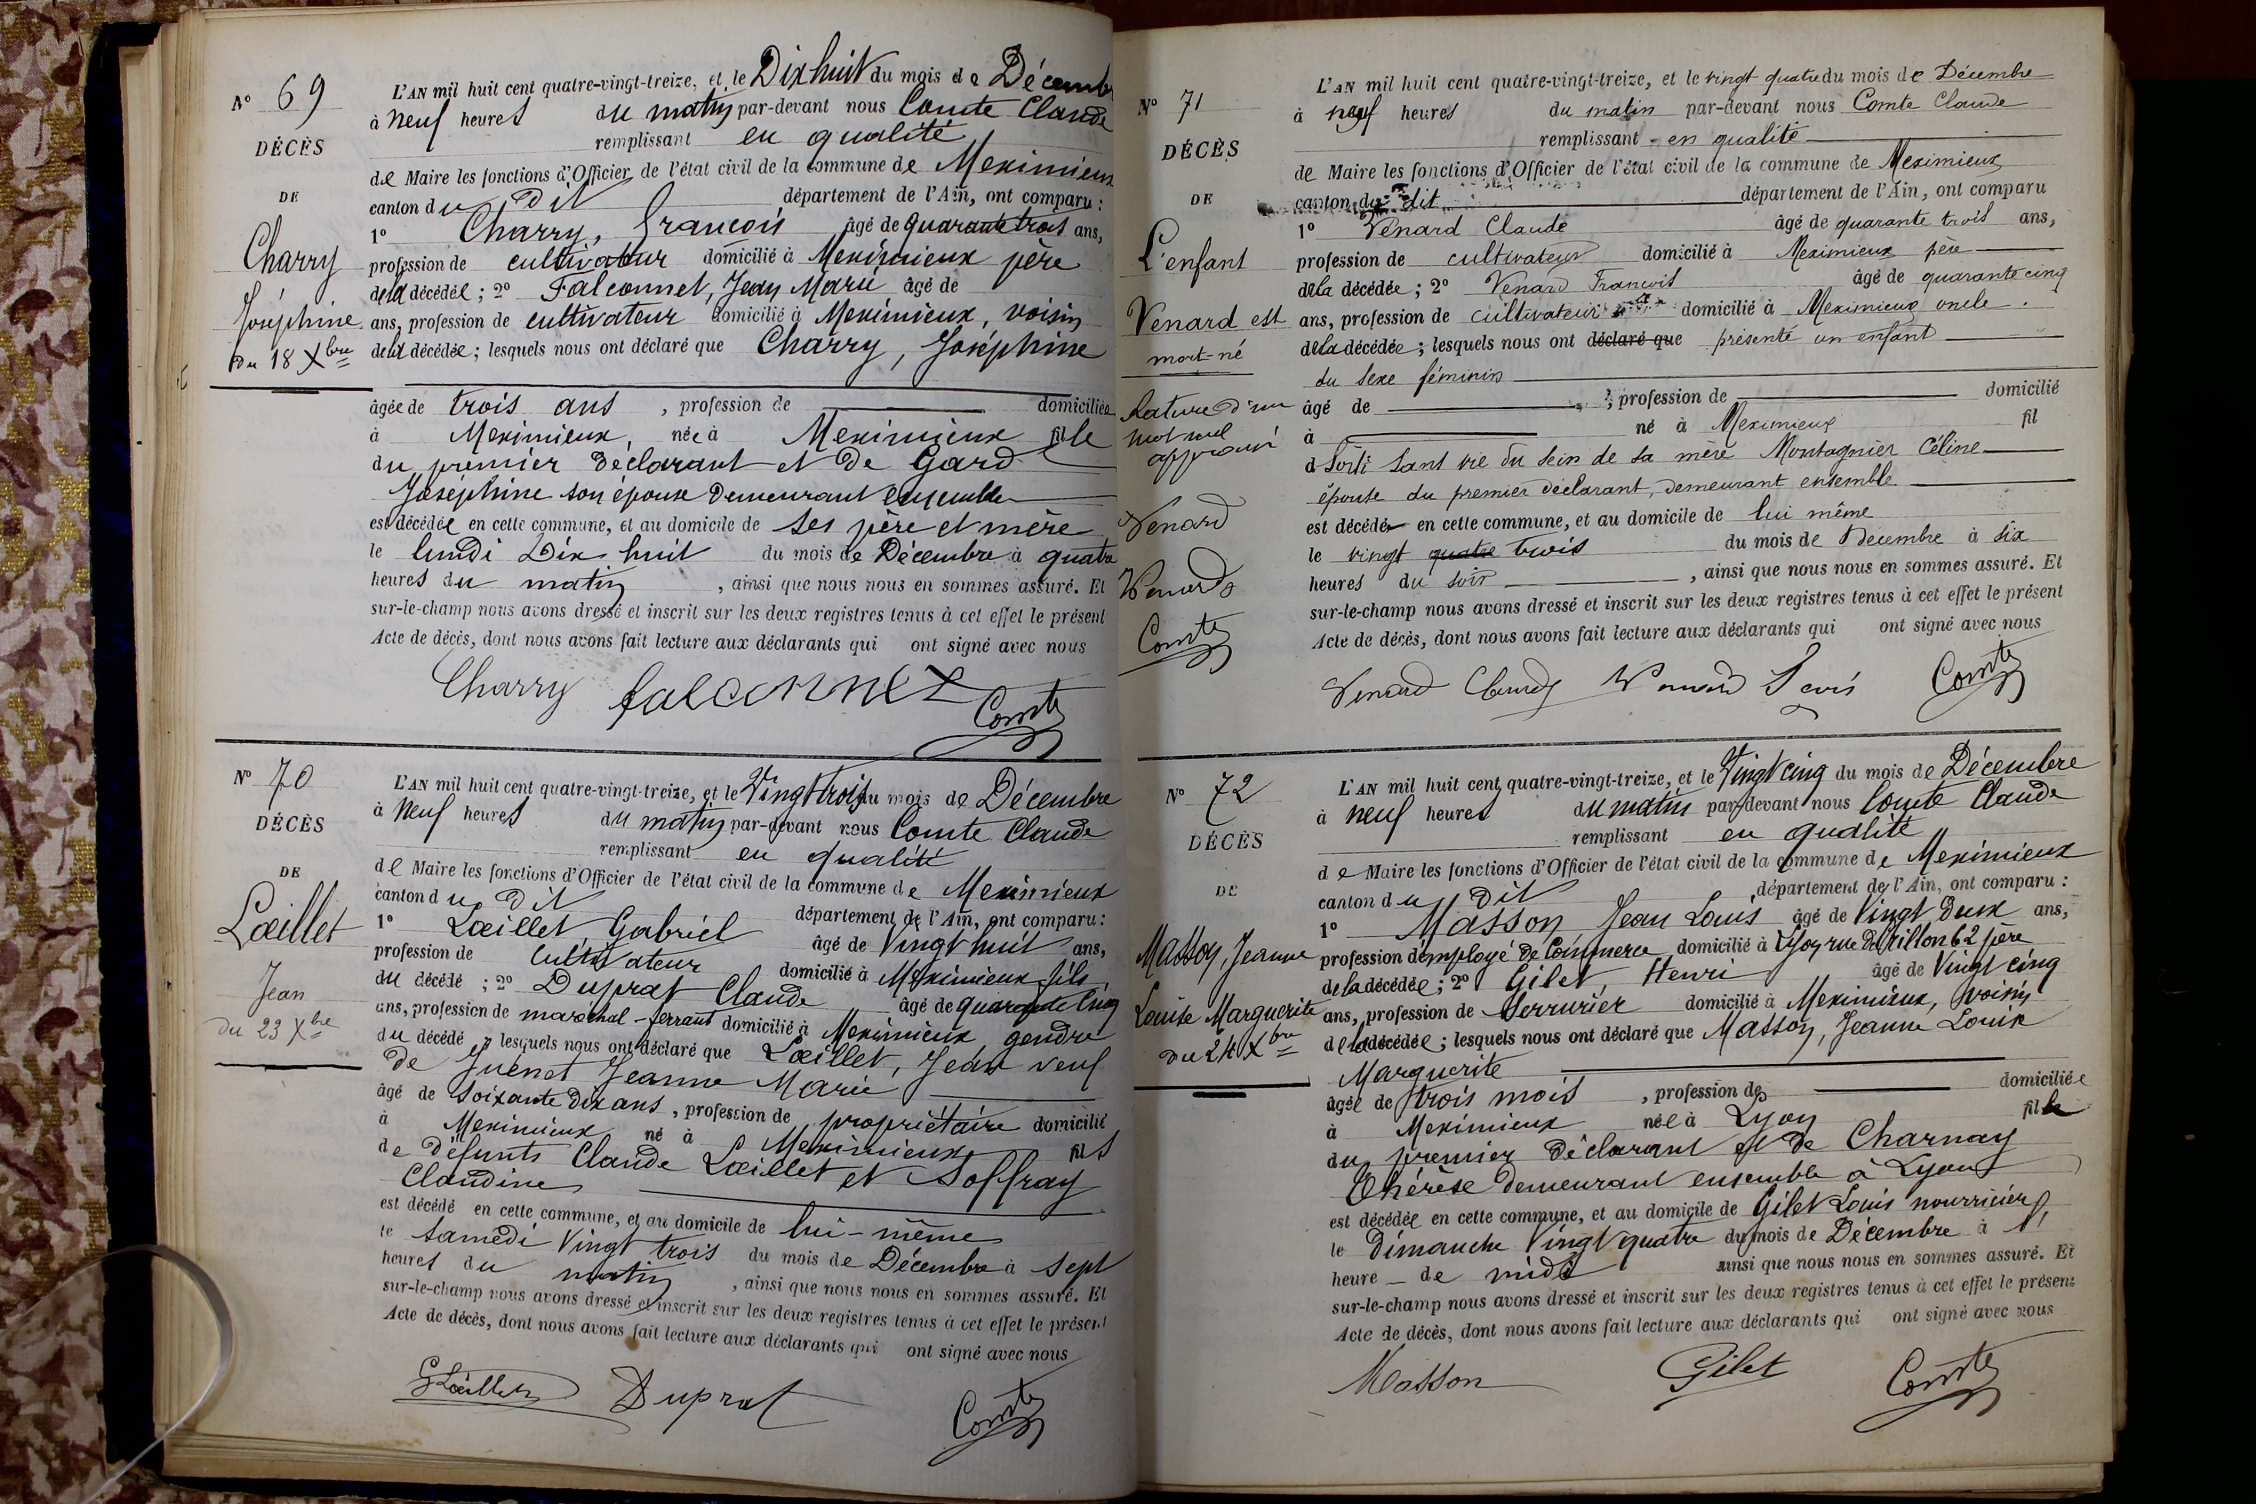 N° 69
DÉCÈS
DE
Charry
Joséphine
Du 18 Xbre
L'AN mil huit cent quatre-vingt-treize, et le Dix huit du mois de Décembre
à neuf heures du matin par-devant nous Comte Claude
remplissant en qualité
de Maire les fonctions d'Officier de l'état civil de la commune de Meximieux
canton du Dit département de l'Ain, ont comparu :
1° Charry, François âgé de quarante trois ans,
profession de cultivateur domicilié à Meximieux père
de la décédée ; 2° Falconnet, Jean Marie âgé de
ans, profession de cultivateur domicilié à Meximieux, voisin
de la décédée ; lesquels nous ont déclaré que Charry, Joséphine
âgée de trois ans , profession de domiciliée
à Meximieux, née à Meximieux fille
du premier déclarant et de Gard
Joséphine son épouse Demeurant ensemble
est décédée en cette commune, et au domicile de ses père et mère
le lundi Dix huit du mois de Décembre à quatre
heures du matin , ainsi que nous nous en sommes assuré. Et
sur-le-champ nous avons dressé et inscrit sur les deux registres tenus à cet effet le présent
Acte de décès, dont nous avons fait lecture aux déclarants qui ont signé avec nous
Charry falconnet Comte
N° 70
DÉCÈS
DE
Lœillet
Jean
du 23 Xbre
L'AN mil huit cent quatre-vingt-treize, et le Vingt trois du mois de Décembre
à Neuf heures du matin par-devant nous Comte Claude
remplissant en qualité
de Maire les fonctions d'Officier de l'état civil de la commune de Meximieux
canton du Dit département de l'Ain, ont comparu :
1° Lœillet Gabriel âgé de Vingt huit ans,
profession de Cultivateur domicilié à Meximieux fils
du décédé ; 2° Duprat Claude âgé de quarante cinq
ans, profession de maréchal-ferrant domicilié à Meximieux gendre
du décédé ; lesquels nous ont déclaré que Lœillet, Jean veuf
de Juenet Jeanne Marie
âgé de soixante dix ans , profession de propriétaire domicilié
à Meximieux né à Meximieux fils
de défunts Claude Lœillet et Soffray
Claudine
est décédé en cette commune, et au domicile de lui-même
le samedi Vingt trois du mois de Décembre à sept
heures du matin , ainsi que nous nous en sommes assuré. Et
sur-le-champ nous avons dressé et inscrit sur les deux registres tenus à cet effet le présent
Acte de décès, dont nous avons fait lecture aux déclarants qui ont signé avec nous
G Lœillet Duprat Comte
N° 71
DÉCÈS
DE
L'enfant
Venard est
mort-né
Rature d'un
mot nul
approuvé
Venard
Venard
Comte
L'AN mil huit cent quatre-vingt-treize, et le vingt quatre du mois de Décembre
à neuf heures du matin par-devant nous Comte Claude
remplissant en qualité
de Maire les fonctions d'Officier de l'état civil de la commune de Meximieux
canton du dit département de l'Ain, ont comparu
1° Venard Claude âgé de quarante trois ans,
profession de cultivateur domicilié à Meximieux père
de la décédée ; 2° Venard François âgé de quarante cinq
ans, profession de cultivateur domicilié à Meximieux oncle .
de la décédée ; lesquels nous ont déclaré que présenté un enfant
du sexe féminin
âgé de , profession de domicilié
à né à Meximieux fil
d Sorti sans vie du sein de sa mère Montagnier Céline
épouse du premier déclarant, demeurant ensemble
est décédé en cette commune, et au domicile de lui même
le vingt quatre trois du mois de Décembre à six
heures du soir , ainsi que nous nous en sommes assuré. Et
sur-le-champ nous avons dressé et inscrit sur les deux registres tenus à cet effet le présent
Acte de décès, dont nous avons fait lecture aux déclarants qui ont signé avec nous
Venard Claude Comte
N° 72
DÉCÈS
DE
Masson, Jeanne
Louise Marguerite
du 24 Xbre
L'AN mil huit cent quatre-vingt-treize, et le Vingt cinq du mois de Décembre
à neuf heures du matin par-devant nous Comte Claude
remplissant en qualité
de Maire les fonctions d'Officier de l'état civil de la commune de Meximieux
canton du Dit département de l'Ain, ont comparu :
1° Masson Jean Louis âgé de Vingt deux ans,
profession d'employé de Commerce domicilié à Lyon rue 62 père
de la décédée ; 2° Gilet Henri âgé de Vingt cinq
ans, profession de Serrurier domicilié à Meximieux, voisin
de la décédée ; lesquels nous ont déclaré que Masson, Jeanne Louise
Marguerite
âgée de trois mois , profession de domiciliée
à Meximieux née à Lyon fille
du premier déclarant et de Charnay
Thérèse demeurant ensemble à Lyon
est décédée en cette commune, et au domicile de Gilet Louis nourricier
le Dimanche Vingt quatre du mois de Décembre à
heure de midi ainsi que nous nous en sommes assuré. Et
sur-le-champ nous avons dressé et inscrit sur les deux registres tenus à cet effet le présent
Acte de décès, dont nous avons fait lecture aux déclarants qui ont signé avec nous
Masson Gilet Comte